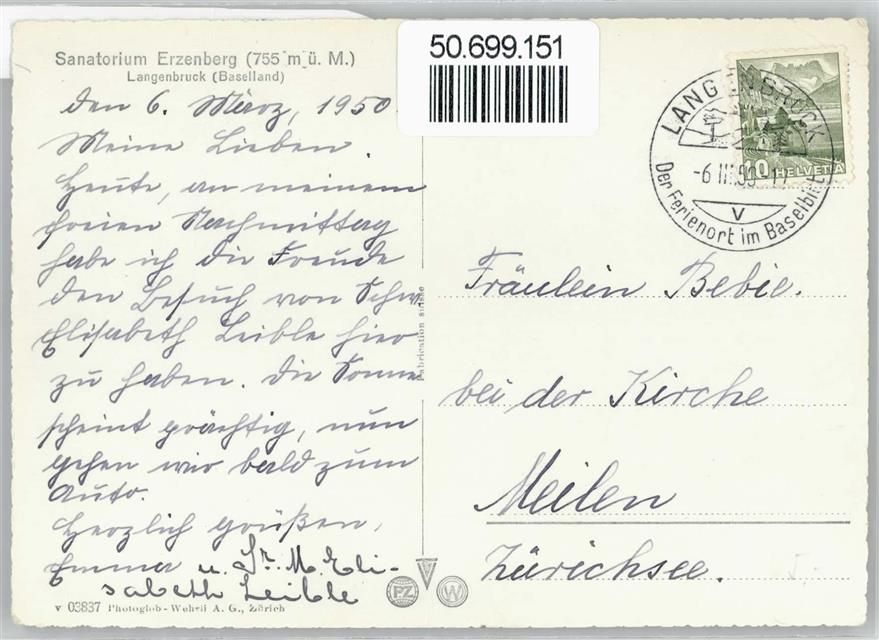 50.699.151
Sanatorium Erzenberg (755 m ü. M.)
Langenbruck (Baselland)
den 6. März, 1950.
Meine Lieben.
Heute, an meinem
freien Nachmittag
habe ich die Freude
den Besuch von Schw.
Elisabeth Leible hier
zu haben. Die Sonne
scheint prächtig, nun
gehen wir bald zum
Auto.
Herzlich grüßen,
Emma u. Sr. M. Eli-
sabeth Leible
V 03837 Photoglob-Wehrli A. G., Zürich
Fabrication suisse
PZ
W
LANGENBRUCK
-6 III 50
V
Der Ferienort im Baselbiet
10 HELVETIA
Fräulein Bebie.
bei der Kirche
Meilen
Zürichsee.